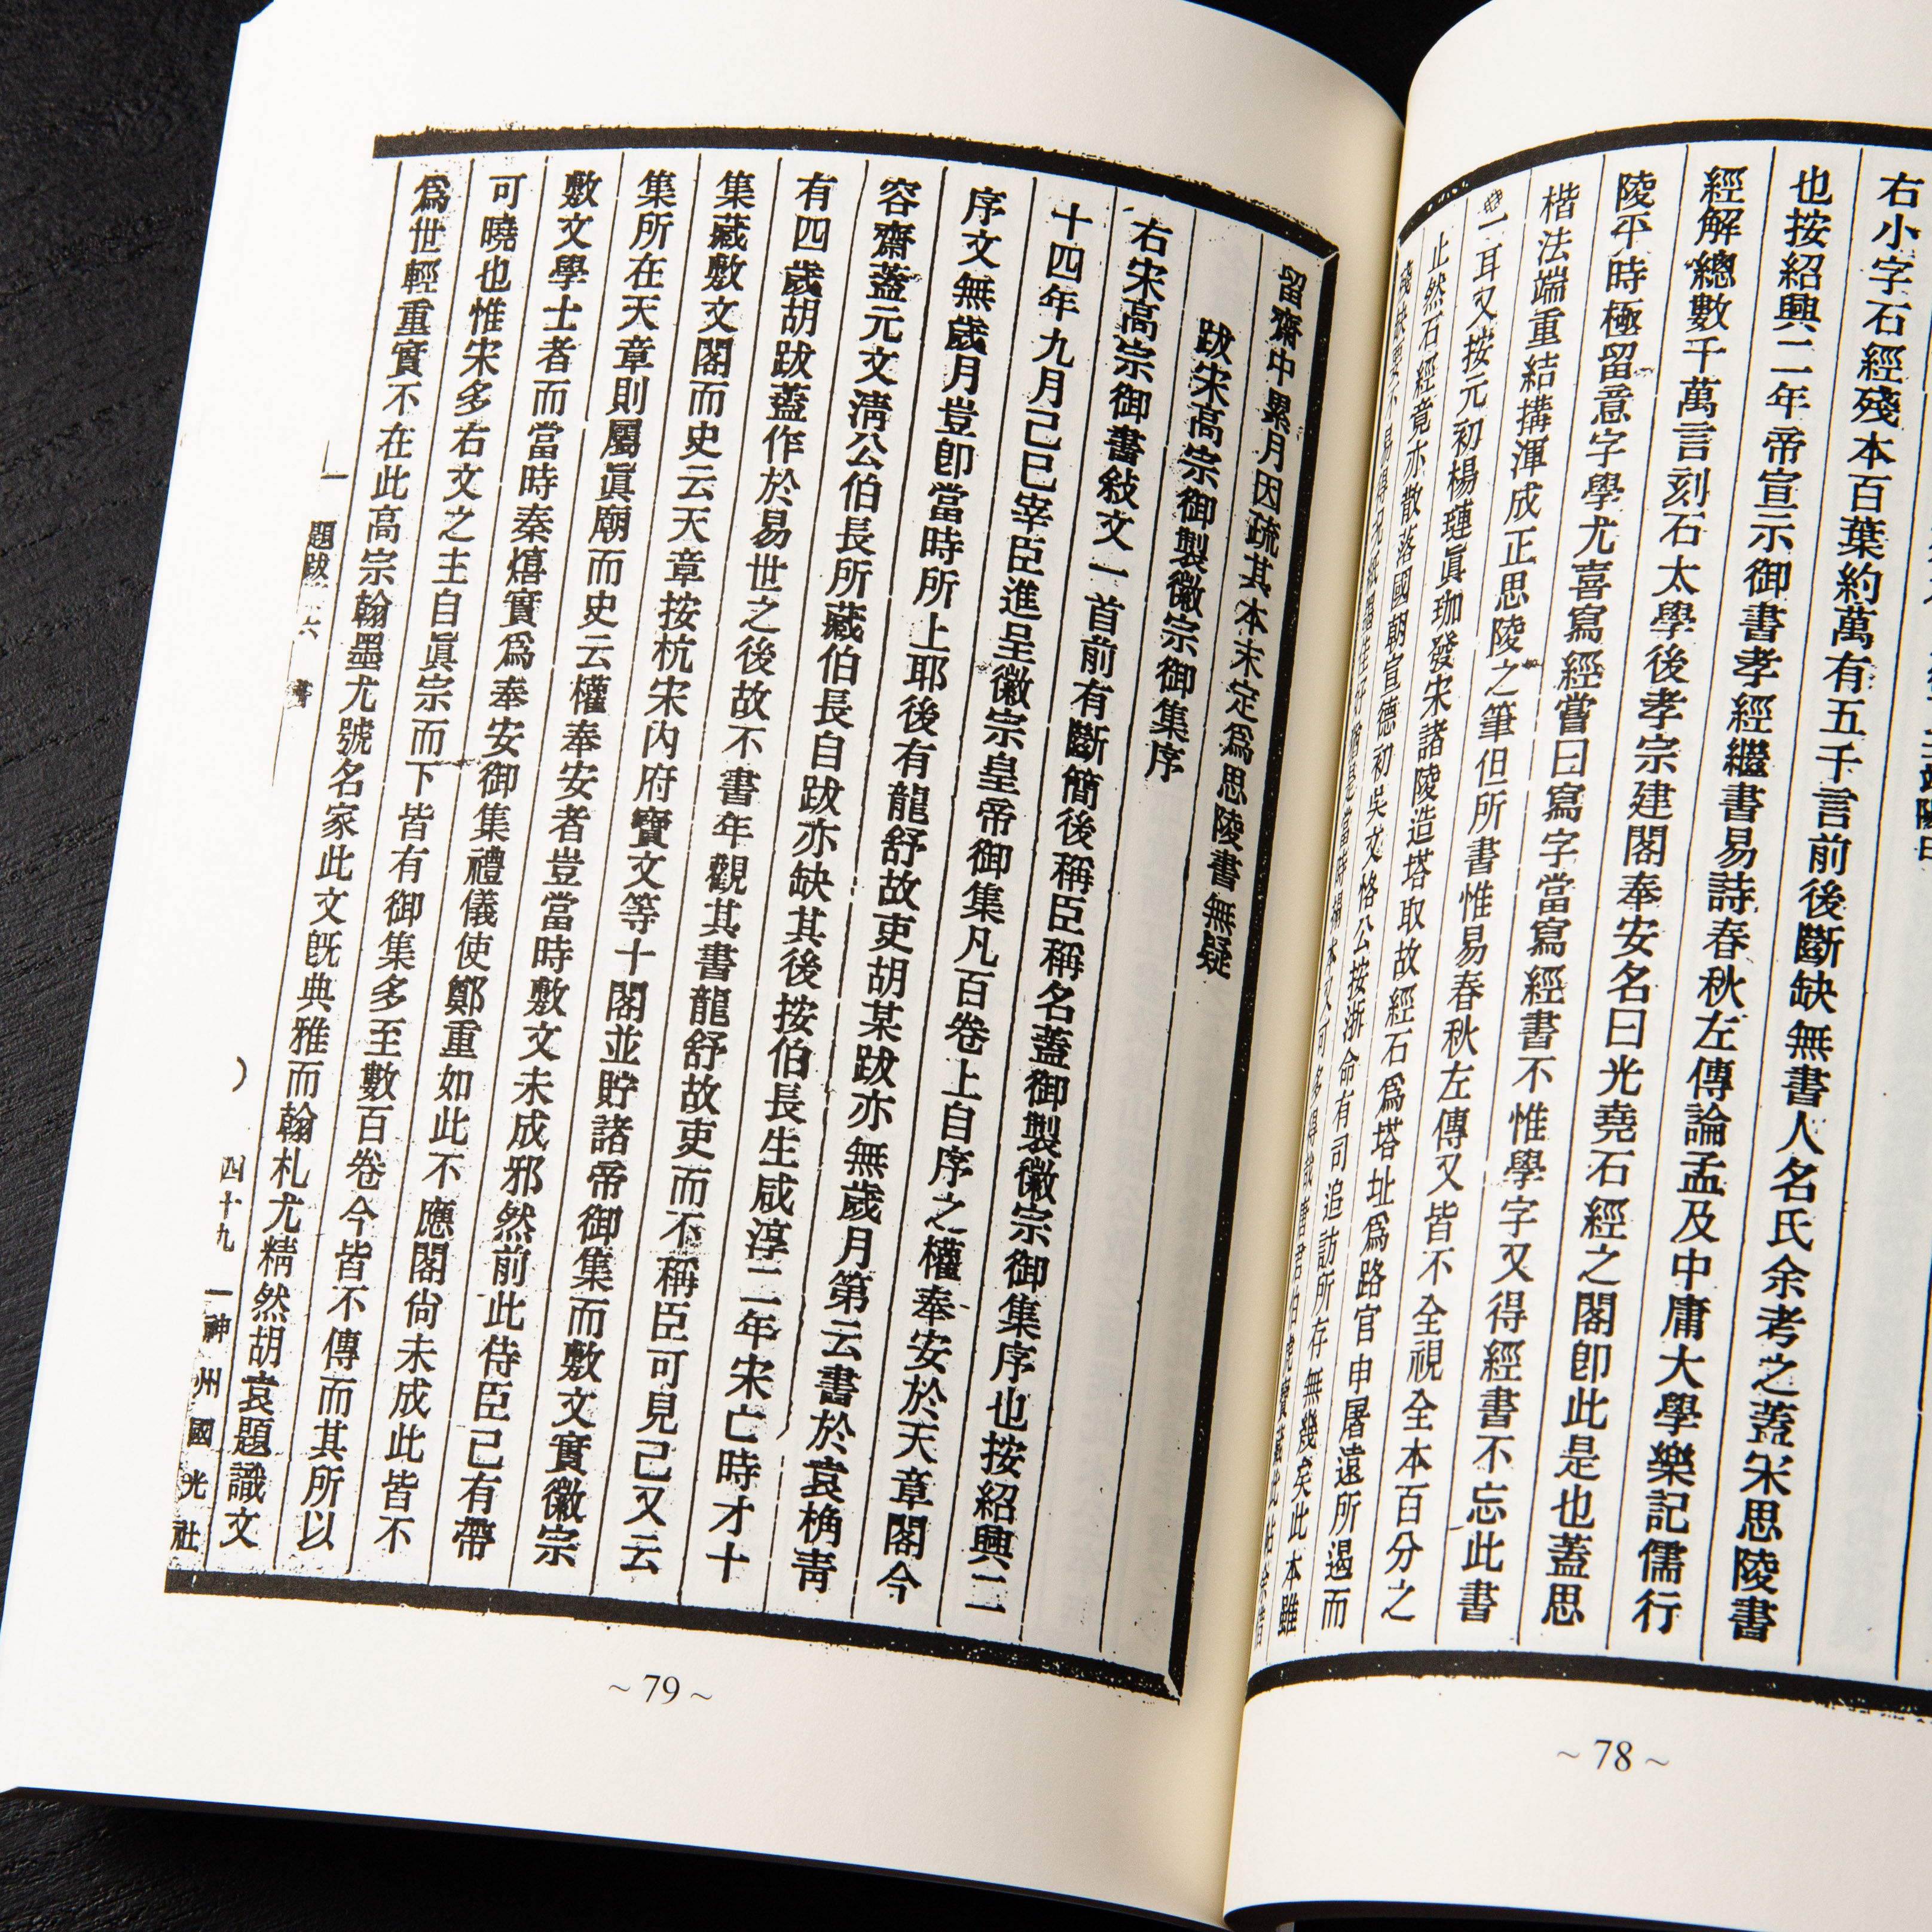 右小字石經殘本百葉約萬有五千言前後斷缺無書人名氏余考之蓋宋思陵書
也按紹興二年帝宣示御書孝經繼書易詩春秋左傳論孟及中庸大學樂記儒行
經解總數千萬言刻石太學後孝宗建閣奉安名曰光堯石經之閣卽此是也蓋思
陵平時極留意字學尤喜寫經嘗曰寫字當寫經書不惟學字又得經書不忘此書
楷法端重結搆渾成正思陵之筆但所書惟易春秋左傳又皆不全視全本百分之
一耳又按元初楊璉眞珈發宋諸陵造塔取故經石爲塔址爲路官申屠遠所遏而
止然石經竟亦散落國朝宣德初吳文恪公按浙命有司追訪所存無幾矣此本雖
~ 78 ~
留齋中累月因疏其本末定爲思陵書無疑
跋宋高宗御製徽宗御集序
右宋高宗御書敍文一首前有斷簡後稱臣稱名蓋御製徽宗御集序也按紹興二
十四年九月己巳宰臣進呈徽宗皇帝御集凡百卷上自序之權奉安於天章閣今
序文無歲月豈卽當時所上耶後有龍舒故吏胡某跋亦無歲月第云書於袁桷靑
容齋蓋元文淸公伯長所藏伯長自跋亦缺其後按伯長生咸淳二年宋亡時才十
有四歲胡跋蓋作於易世之後故不書年觀其書龍舒故吏而不稱臣可見已又云
集藏敷文閣而史云天章按杭宋內府寶文等十閣並貯諸帝御集而敷文實徽宗
集所在天章則屬眞廟而史云權奉安者豈當時敷文未成邪然前此侍臣已有帶
敷文學士者而當時秦熺實爲奉安御集禮儀使鄭重如此不應閣尙未成此皆不
可曉也惟宋多右文之主自眞宗而下皆有御集多至數百卷今皆不傳而其所以
爲世輕重實不在此高宗翰墨尤號名家此文旣典雅而翰札尤精然胡袁題識文
題跋 六 書 四十九 神州國光社
~ 79 ~